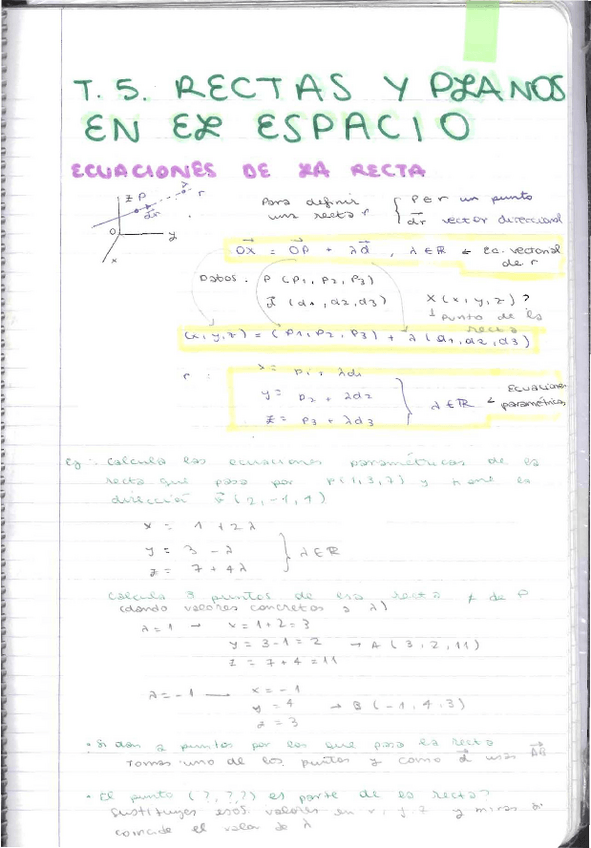 T. 5. RECTAS Y PLANOS
EN EL ESPACIO
ECUACIONES DE LA RECTA
z P r
dr
O y
x
Para definir una recta r { P ∈ r un punto
dr vector direccional
OX = OP + λd , λ ∈ ℝ ← Ec. vectorial de r
Datos. P (P1, P2, P3)
d (d1, d2, d3) X (x, y, z) ?
1 punto de la recta
(x, y, z) = (P1, P2, P3) + λ (d1, d2, d3)
r : x = P1 + λd1
y = P2 + λd2 } λ ∈ ℝ ← Ecuaciones paramétricas
z = P3 + λd3
Eg : Calcula las ecuaciones paramétricas de la
recta que pasa por P(1,3,7) y tiene la
dirección
x = 1 + 2λ
y = 3 - λ } λ ∈ ℝ
z = 7 + 4λ
Calcula 3 puntos de esa recta ≠ de P
(dando valores concretos a λ)
λ = 1 → x = 1 + 2 = 3
y = 3 - 1 = 2 → A (3, 2, 11)
z = 7 + 4 = 11
λ = -1 — x = -1
y = 4 → B (-1, 4, 3)
z = 3
• Si dan 2 puntos por los que pasa la recta
tomas uno de los puntos y como d usas AB
• El punto (?, ?, ?) es parte de la recta?
Sustituyes esos valores en x, y, z y miras si
coincide el valor de λ